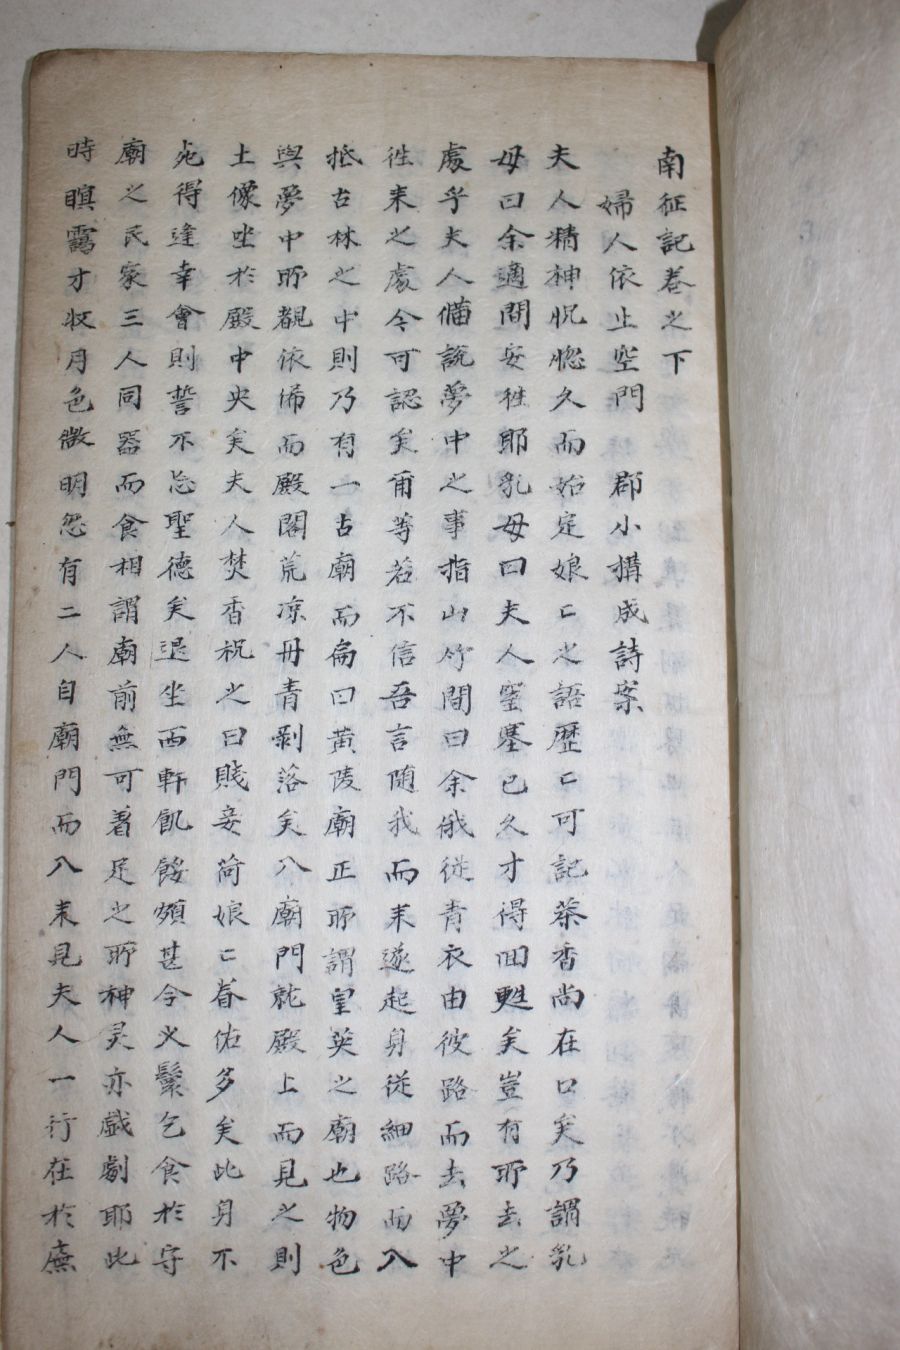 南征記卷之下
婦人依止空門　郡小構成詩案
夫人精神怳惚久而始定娘〻之語歷〻可記茶香尚在口矣乃謂乳
母曰余適間安徃耶乳母曰夫人窒塞已久才得回甦矣豈有所去之
處乎夫人備說夢中之事指山竹間曰余俄從青衣由彼路而去夢中
徃来之處今可認矣甫等若不信吾言随我而来遂起身從細路而入
抵古林之中則乃有一古廟而扁曰黄陵廟正所謂皇英之廟也物色
與夢中所覩依俙而殿閣荒凉丹青剥落矣入廟門就殿上而見之則
土像坐於殿中央矣夫人焚香祝之曰賎妾荷娘〻眷佑多矣此身不
死得逢幸會則誓不忘聖德矣退坐西軒飢餒頗甚令乂鬟乞食於守
廟之民家三人同器而食相謂廟前無可着足之所神灵亦戱劇耶此
時瞑靄才収月色微明忽有二人自廟門而入来見夫人一行在於廡